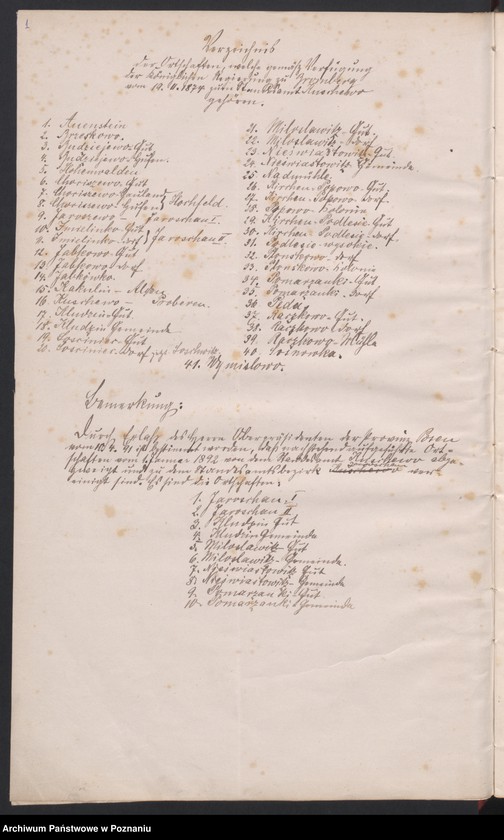 1
Verzeichnis
der Ortschaften, welche gemäß Verfügung
der Königlichen Regierung zu Bromberg
vom 10. 1874 zum Standesamt Kuschewo
gehören.
1. Auenstein
2. Brieskowo.
3. Budziejewo-Gut
4. Budziejewo-Hufen.
5. Hohenwalden
6. Chorizewo-Gut
7. Chorizewo-Hauland
8. Chorizewo-Hufen } Hochfeld.
9. Jaroszewo - Jaroschau I.
10. Smielinko-Gut
11. Smielinko-Dorf } Jaroschau II.
12. Jabkowo-Gut
13. Jabkowo-Dorf
14. Jabkinko.
15. Kakulin - Abbau
16. Kuschewo - Proberen.
17. Kludzin-Gut.
18. Kludzin Gemeinde
19. Losziniec-Gut
20. Losziniec-Dorf
21. Miloslawitz-Gut.
22. Miloslawitz-Dorf
23. Niejwiastowitz-Gut
24. Niejwiastowitz-Gemeinde
25. Nadmühle.
26. Kirchen-Popowo-Gut.
27. Kirchen-Popowo-Dorf.
28. Popowo-Kolonie
29. Kirchen-Podlesie-Gut
30. Kirchen-Podlesie-Dorf.
31. Podlesie-wysokie.
32. Dorf
33. Kolonie
34. Pomarzanki-Gut
35. Pomarzanki-Dorf
36.
37. Raczkowo-Gut.
38. Raczkowo-Dorf
39. Raczkowo-Mühle
40. Sosnowka.
41. Wymislowo.
Bemerkung:
Durch Erlaß des Herrn Oberpräsidenten der Provinz Posen
vom ist bestimmt worden, daß nachstehend aufgeführte Ort-
schaften vom 1. Januar 1892 von dem Standesamt Kuschewo abge-
zweigt und zu dem Standesamtsbezirk Jaroschau ver-
einigt sind. Es sind die Ortschaften:
1. Jaroschau I
2. Jaroschau II
3. Kludzin Gut
4. Kludzin Gemeinde
5. Miloslawitz-Gut
6. Miloslawitz-Gemeinde.
7. Niejwiastowitz-Gut
8. Niejwiastowitz-Gemeinde
9. Pomarzanki-Gut
10. Pomarzanki-Gemeinde
Archiwum Państwowe w Poznaniu